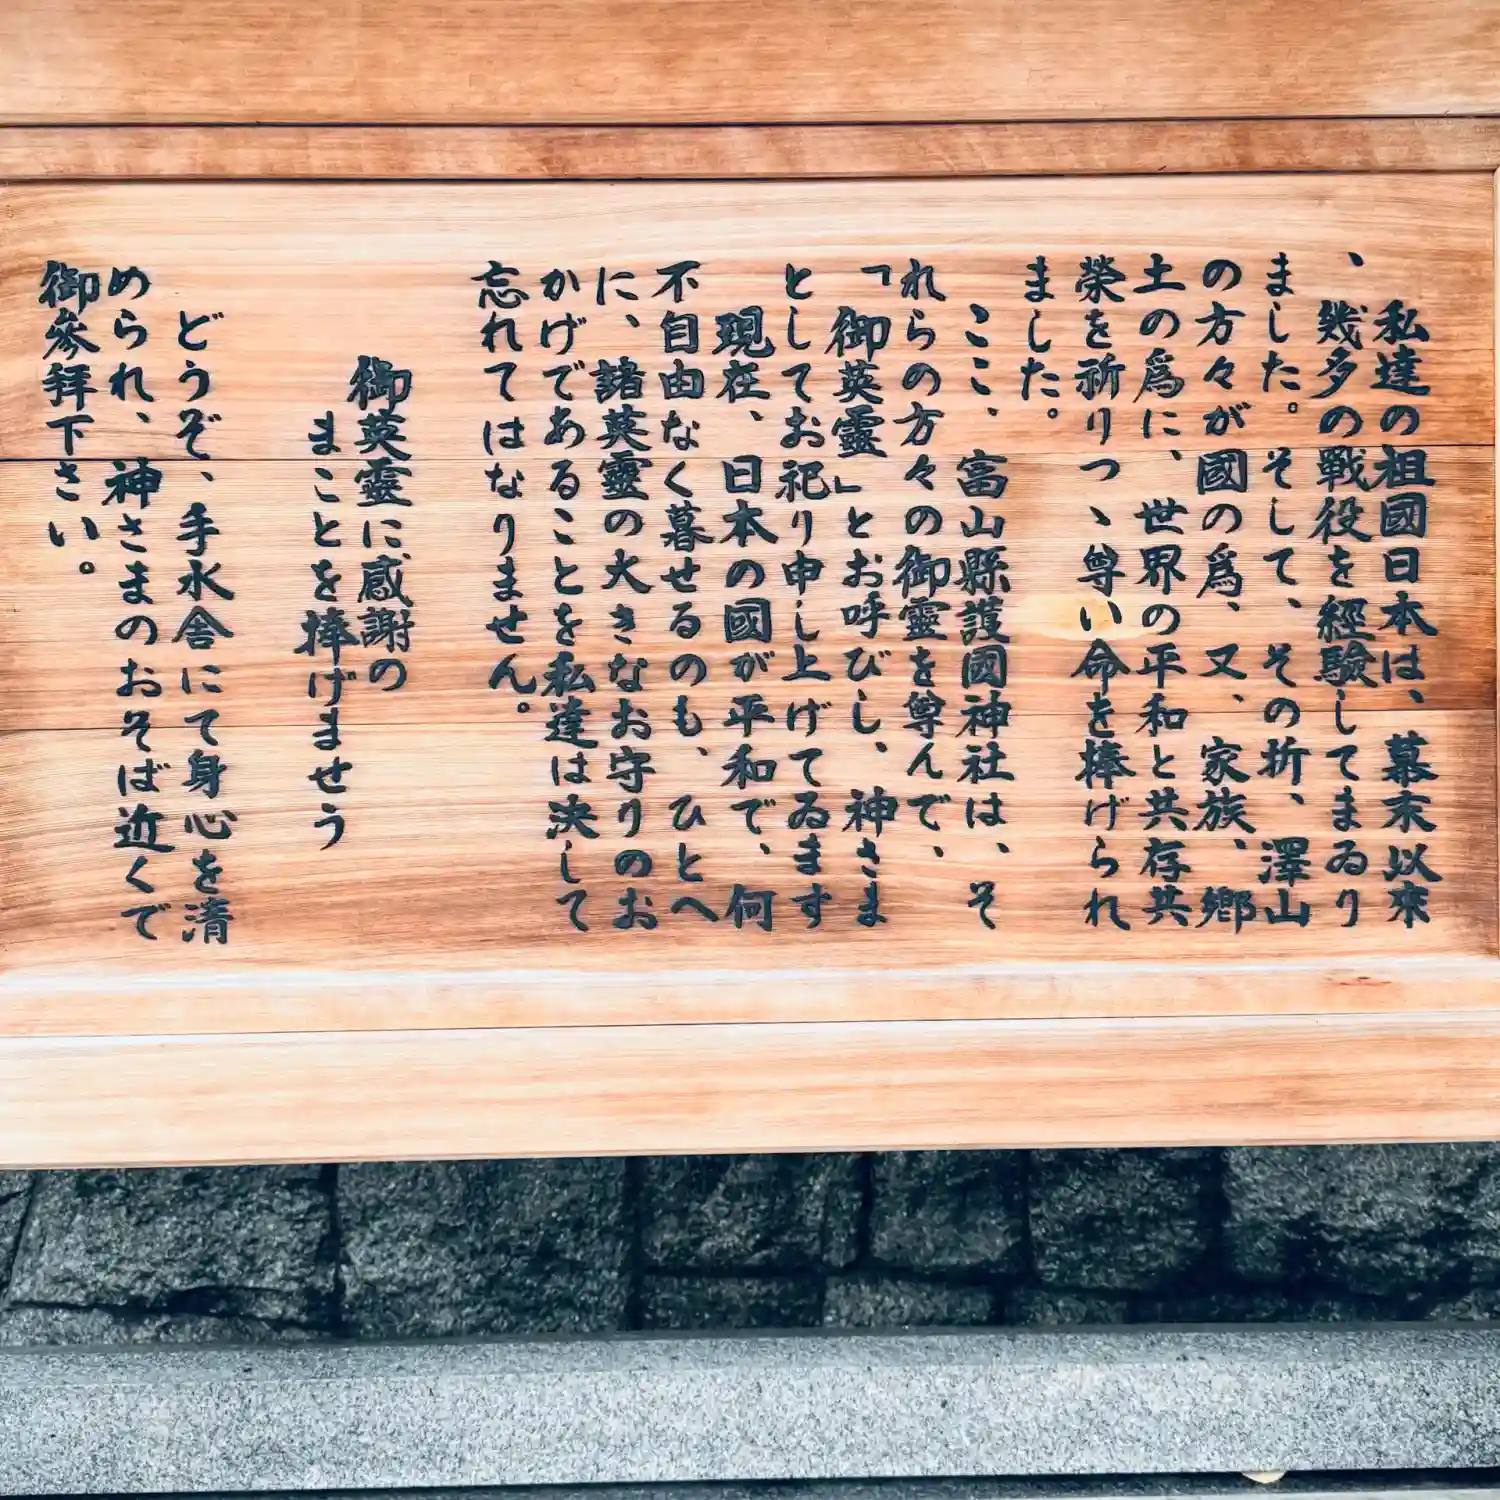 私達の祖國日本は、幕末以來
、幾多の戰役を經驗してまゐり
ました。そして、その折、澤山
の方々が國の爲、又、家族、鄕
土の爲に、世界の平和と共存共
榮を祈りつゝ尊い命を捧げられ
ました。
ここ、富山縣護國神社は、そ
れらの方々の御靈を尊んで、
「御英靈」とお呼びし、神さま
としてお祀り申し上げてゐます
現在、日本の國が平和で、何
不自由なく暮せるのも、ひとへ
に、諸英靈の大きなお守りのお
かげであることを私達は決して
忘れてはなりません。
御英靈に感謝の
まことを捧げませう
どうぞ、手水舎にて身心を清
められ、神さまのおそば近くで
御參拜下さい。